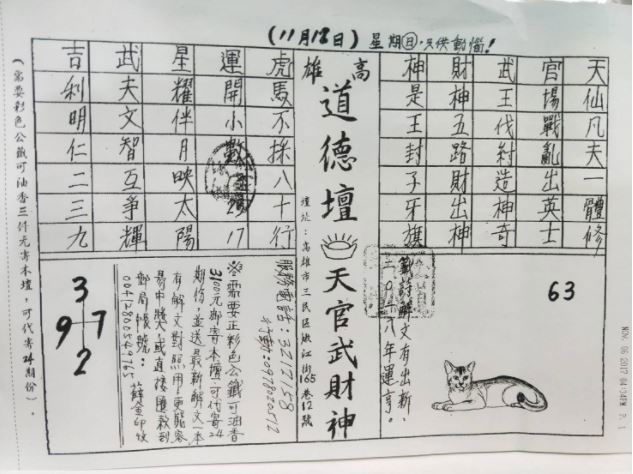 (11月12日) 星期日,只供動惱!
天仙凡夫一體修
官場戰亂出英士
武王伐紂造神奇
財神五路財出神
神是王封子牙旗
高雄
道德壇
天官武財神
壇址:高雄市三民區嫩江街165巷12號
虎馬不採八十行
運開小數 17
星耀伴月映太陽
武夫文智互爭輝
吉利明仁二三九
63
籤詩解文有出新,
二0一八年運亨。
服務電話:3217158
※需要正彩色公籤可油香
3100元郵寄本壇可代寄24
期份,並送最新解文一本
有解文對照用,更能容
易中獎,或直接匯款到
郵局帳號:
3
9 7
2
(需要彩色公籤可油香三仟元寄本壇,可代寄24期份)。
NOV. 06 2017 04:34PM P. 1